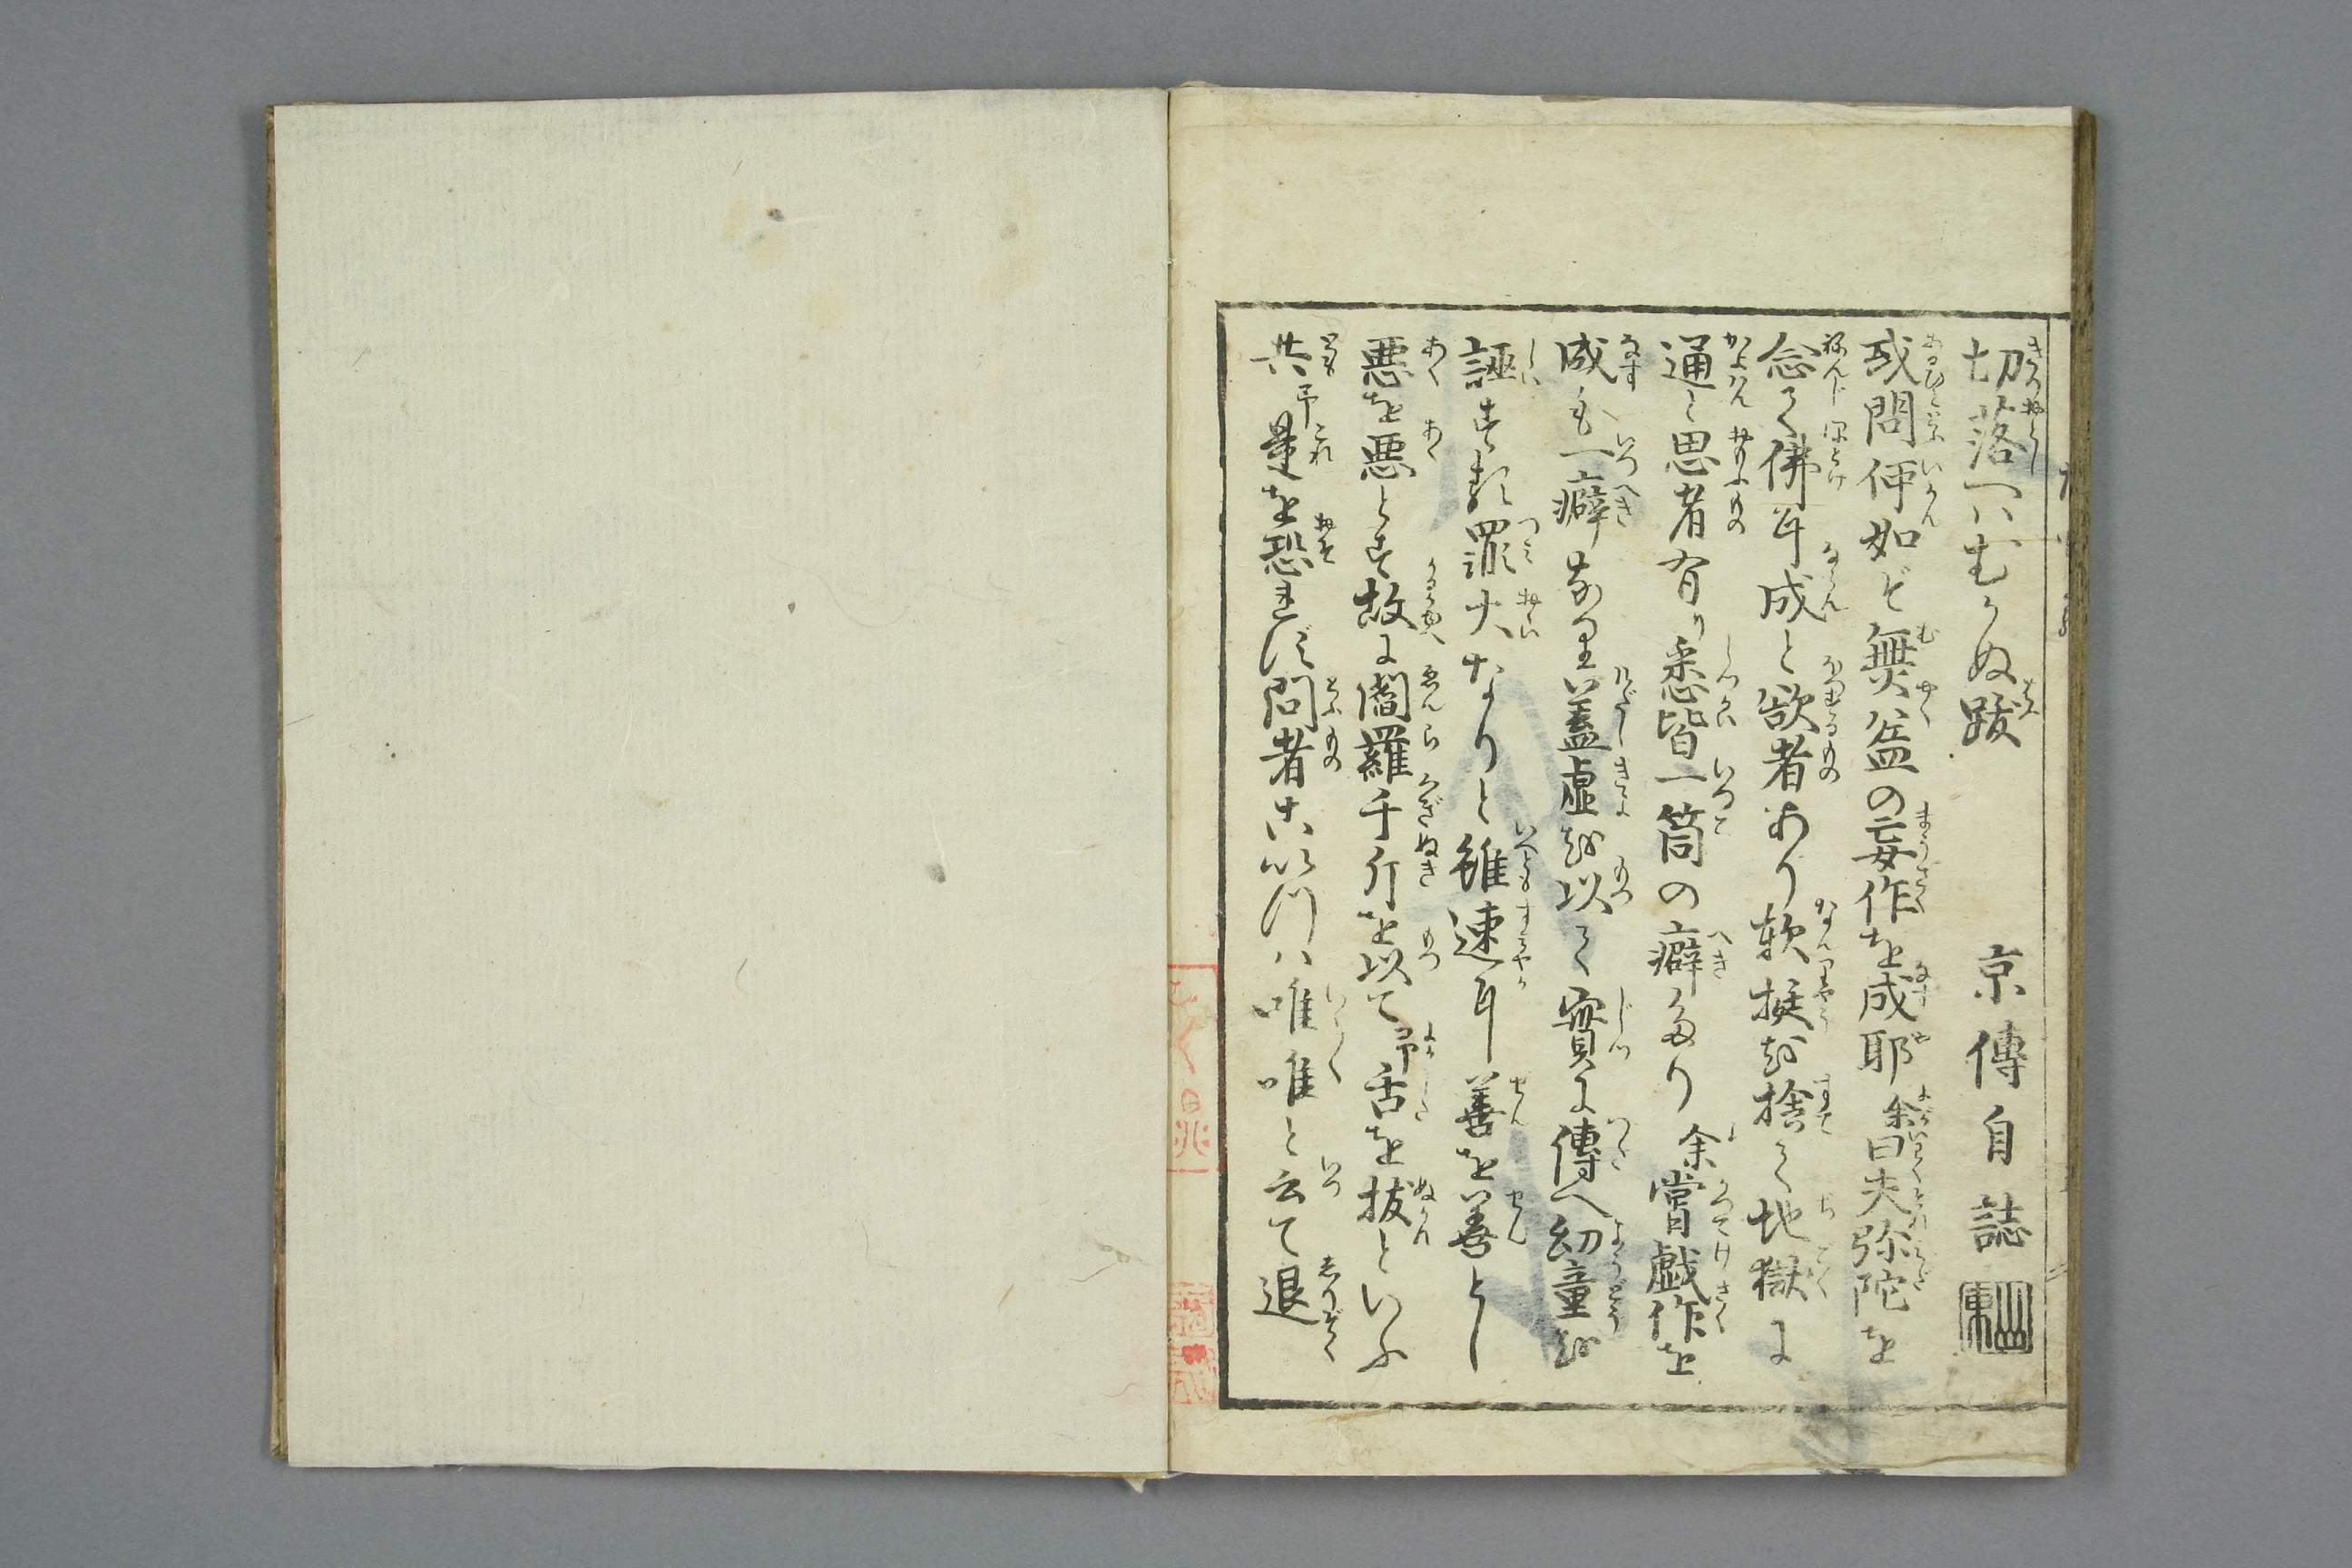 切落へはむかぬ跋 京傳自誌
或問何如ぞ無益の妄作を成耶余曰夫弥陀を
念て佛耳成と欲者あり軟挺を捨て地獄に
通と思者有り悉皆一箇の癖なり余嘗戯作を
成も一癖なり蓋虚を以て實に傳へ幼童を
誣す罪大なりと雖速耳善を善とし
悪を悪とす故に閻羅千斤を以て予舌を抜といふ
共予是を恐れず問者唯唯と云て退